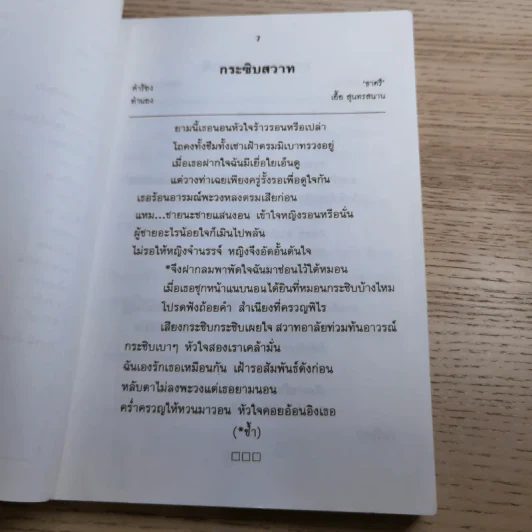 7
กระซิบสวาท
คำร้อง "ธาตรี"
ทำนอง เอื้อ สุนทรสนาน
ยามนี้เธอนอนหัวใจร้าวรอนหรือเปล่า
โถคงทั้งซึมทั้งเซาเฝ้าตรมมิเบาทรวงอยู่
เมื่อเธอฝากใจฉันมีเยื่อใยเอ็นดู
แต่วางท่าเฉยเพียงครู่รั้งรอเพื่อดูใจกัน
เธอร้อนอารมณ์พะวงหลงตรมเสียก่อน
แหม...ชายนะชายแสนงอน เข้าใจหญิงรอนหรือนั่น
ผู้ชายอะไรน้อยใจก็เมินไปพลัน
ไม่รอให้หญิงจำนรรจ์ หญิงจึงอัดอั้นตันใจ
*จึงฝากลมพาพัดใจฉันมาซ่อนไว้ใต้หมอน
เมื่อเธอซุกหน้าแนบนอนได้ยินที่หมอนกระซิบบ้างไหม
โปรดฟังถ้อยคำ สำเนียงที่ครวญพิไร
เสียงกระซิบกระซิบเผยใจ สวาทอาลัยท่วมทันอาวรณ์
กระซิบเบาๆ หัวใจสองเราเคล้ามั่น
ฉันเองรักเธอเหมือนกัน เฝ้ารอสัมพันธ์ดังก่อน
หลับตาไม่ลงพะวงแต่เธอยามนอน
คร่ำครวญให้หวนมาวอน หัวใจคอยอ้อนอิงเธอ
(*ซ้ำ)